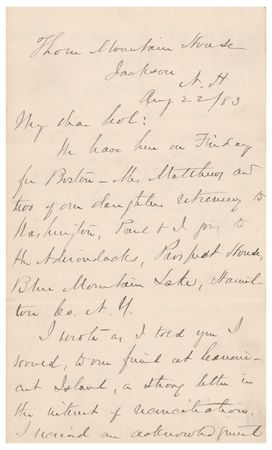 Thorn Mountain House
Jackson
N. H
Aug 22/83
My dear Col:
We leave here on Friday
for Boston - Mr. Matthews and
two of our daughters returning to
Washington, Paul & I going to
the Adirondacks, Prospect House,
Blue Mountain Lake, Hamil
ton Co. N. Y.
I wrote as I told you I
would, to our friend at
Island, a strong letter in
the interest of reconciliation.
I received an acknowledgment